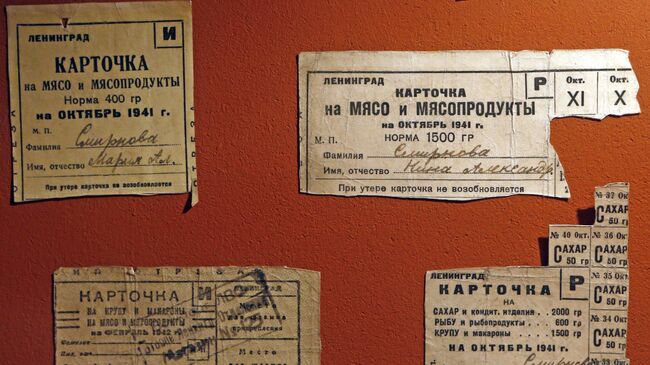 ЛЕНИНГРАД
И
КАРТОЧКА
на МЯСО и МЯСОПРОДУКТЫ
Норма 400 гр
на ОКТЯБРЬ 1941 г.
М. П.
Фамилия Смирнова
Имя, отчество Мария Ал.
При утере карточка не возобновляется
ОТРЕЗА
ЛЕНИНГРАД
Р
КАРТОЧКА
на МЯСО и МЯСОПРОДУКТЫ
на ОКТЯБРЬ 1941 г.
НОРМА 1500 ГР
М. П.
Фамилия Смирнова
Имя, отчество Нина Александр.
При утере карточка не возобновляется
Окт. XI
Окт. X
И
ЛЕНИНГРАД
КАРТОЧКА
НА КРУПУ И МАКАРОНЫ
НА МЯСО И МЯСОПРОДУКТЫ
на ФЕВРАЛЬ 1942 г.
Фамилия
Имя, отч.
Место
ЛЕНИНГРАД
Р
КАРТОЧКА
НА
САХАР и кондит. изделия . . 2000 гр
РЫБУ и рыбопродукты . . . 600 гр
КРУПУ и макароны . . . 1500 гр
НА ОКТЯБРЬ 1941 г.
Смирнова
№ 37 Окт.
САХАР
50 гр
№ 40 Окт.
САХАР
50 гр
№ 36 Окт.
САХАР
50 гр
№ 35 Окт.
САХАР
50 гр
№ 34 Окт.
САХАР
50 гр
№ 33 Окт.